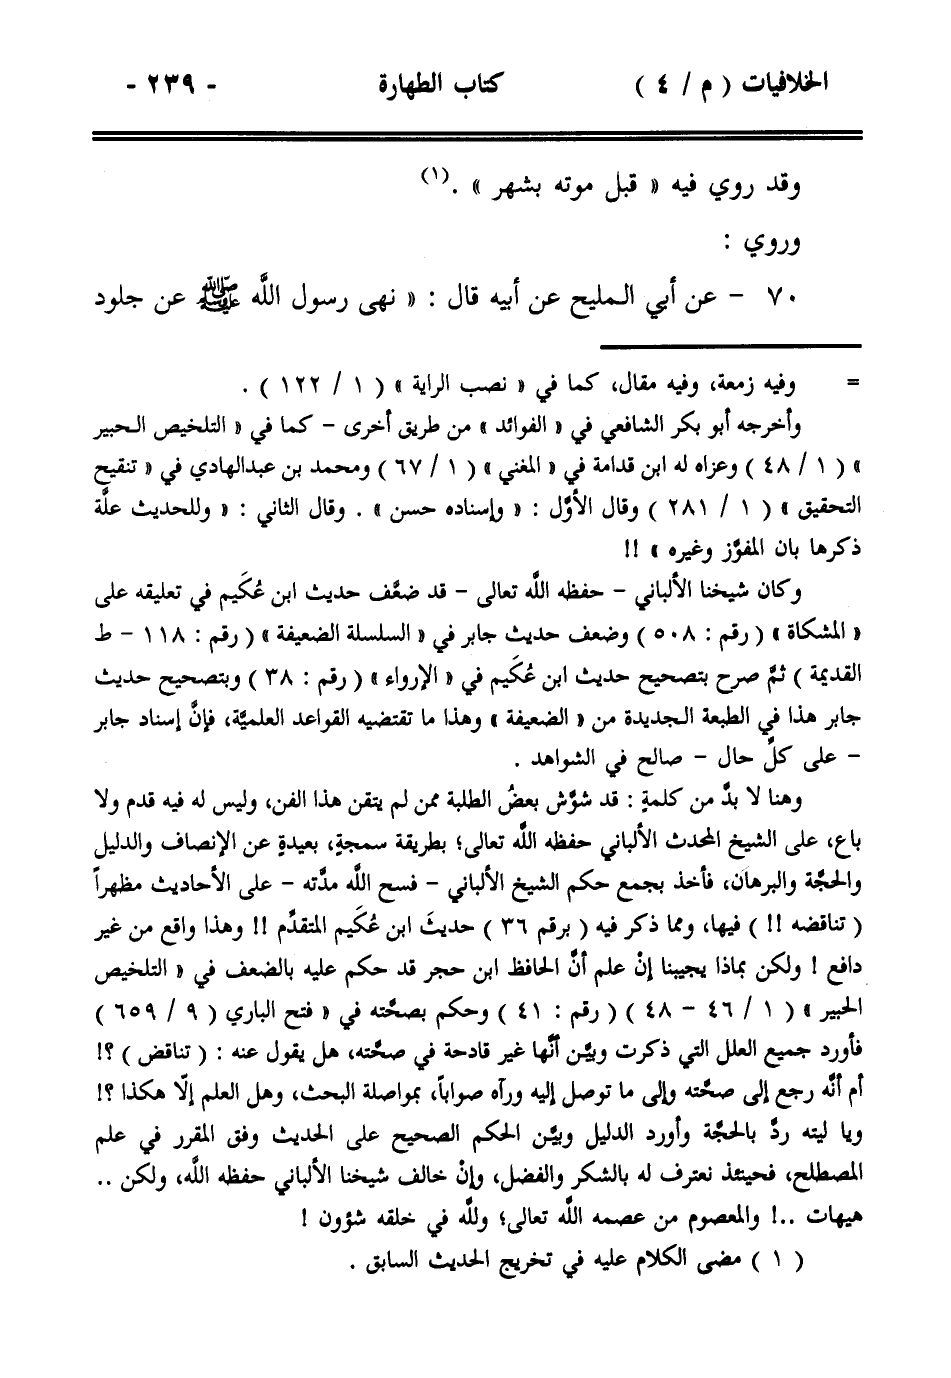 الخلافيات ( م / ٤ ) كتاب الطهارة - ٢٣٩ -
وقد روي فيه « قبل موته بشهر » .(١)
وروي :
٧٠ – عن أبي المليح عن أبيه قال : « نهى رسول اللَّه ﷺ عن جلود
= وفيه زمعة، وفيه مقال، كما في « نصب الراية » ( ١ / ١٢٢ ) .
وأخرجه أبو بكر الشافعي في « الفوائد » من طريق أخرى – كما في « التلخيص الحبير
» ( ١ / ٤٨ ) وعزاه له ابن قدامة في « المغني » ( ١ / ٦٧ ) ومحمد بن عبدالهادي في « تنقيح
التحقيق » ( ١ / ٢٨١ ) وقال الأوَّل : « وإسناده حسن » . وقال الثاني : « وللحديث علَّة
ذكرها بان المفوَّز وغيره » !!
وكان شيخنا الألباني – حفظه اللَّه تعالى – قد ضعَّف حديث ابن عُكَيم في تعليقه على
« المشكاة » ( رقم : ٥٠٨ ) وضعف حديث جابر في « السلسلة الضعيفة » ( رقم : ١١٨ – ط
القديمة ) ثمَّ صرح بتصحيح حديث ابن عُكَيم في « الإرواء » ( رقم : ٣٨ ) وبتصحيح حديث
جابر هذا في الطبعة الجديدة من « الضعيفة » وهذا ما تقتضيه القواعد العلميَّة، فإنَّ إسناد جابر
– على كلِّ حال – صالح في الشواهد .
وهنا لا بدَّ من كلمةٍ : قد شوَّش بعضُ الطلبة ممن لم يتقن هذا الفن، وليس له فيه قدم ولا
باع، على الشيخ المحدث الألباني حفظه اللَّه تعالى؛ بطريقة سمجةٍ، بعيدةٍ عن الإنصاف والدليل
والحجَّة والبرهان، فأخذ بجمع حكم الشيخ الألباني – فسح اللَّه مدَّته – على الأحاديث مظهراً
( تناقضه !! ) فيها، ومما ذكر فيه ( برقم ٣٦ ) حديثَ ابن عُكَيم المتقدِّم !! وهذا واقع من غير
دافع ! ولكن بماذا يجيبنا إنْ علم أنَّ الحافظ ابن حجر قد حكم عليه بالضعف في « التلخيص
الحبير » ( ١ / ٤٦ – ٤٨ ) ( رقم : ٤١ ) وحكم بصحَّته في « فتح الباري ( ٩ / ٦٥٩ )
فأورد جميع العلل التي ذكرت وبيَّن أنَّها غير قادحة في صحَّته، هل يقول عنه : ( تناقض ) ؟!
أم أنَّه رجع إلى صحَّته وإلى ما توصل إليه ورآه صواباً، بمواصلة البحث، وهل العلم إلّا هكذا ؟!
ويا ليته ردَّ بالحجَّة وأورد الدليل وبيَّن الحكم الصحيح على الحديث وفق المقرر في علم
المصطلح، فحينئذ نعترف له بالشكر والفضل، وإنْ خالف شيخنا الألباني حفظه اللَّه، ولكن ..
هيهات ..! والمعصوم من عصمه اللَّه تعالى؛ وللَّه في خلقه شؤون !
( ١ ) مضى الكلام عليه في تخريج الحديث السابق .